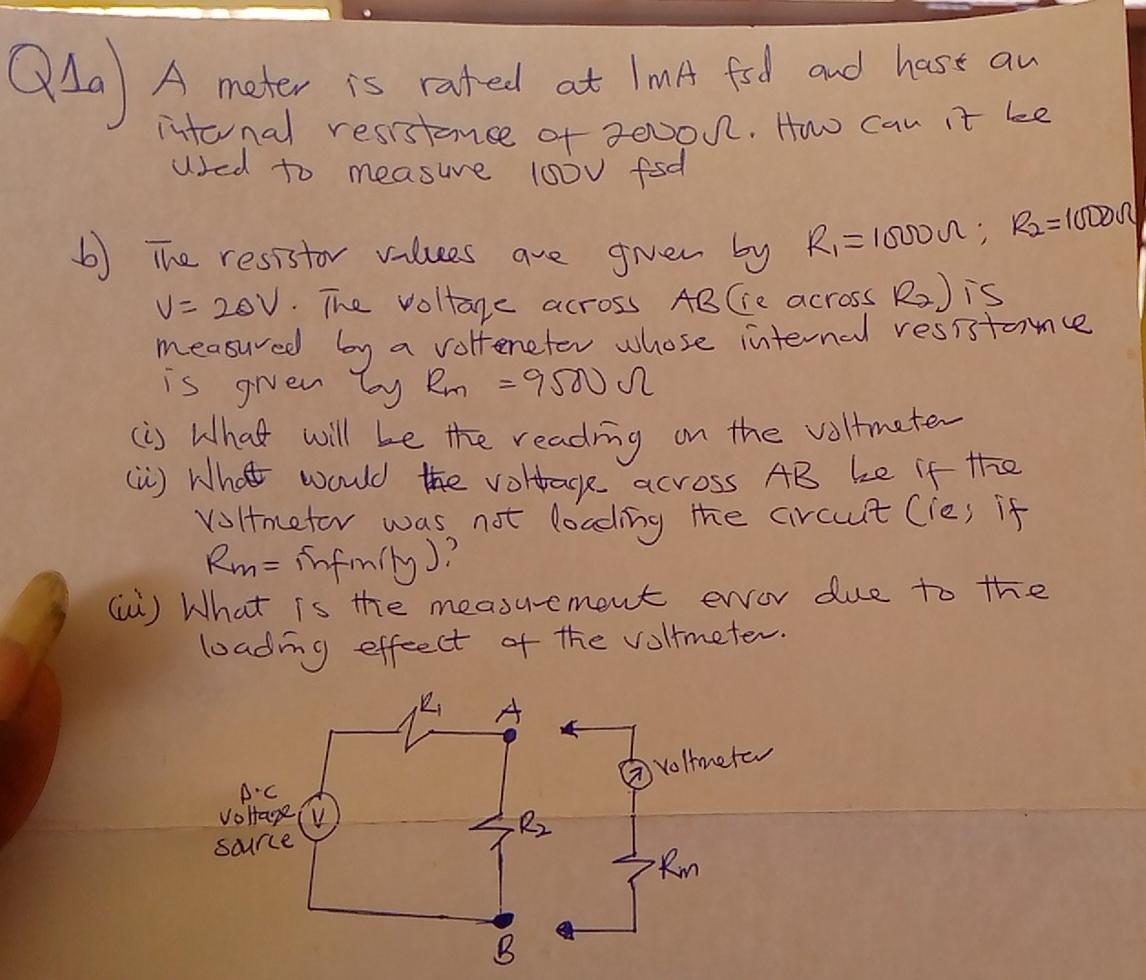 Q1a) A meter is rated at 1mA fsd and hast an
internal resistance of 2000Ω. How can it be
used to measure 100V fsd
b) The resistor values are given by R₁=1000Ω; R₂=1000Ω
V=20V. The voltage across AB (ie across R₂) is
measured by a voltemeter whose internal resistance
is given by Rm = 9500Ω
(i) What will be the reading on the voltmeter
(ii) What would the voltage across AB be if the
voltmeter was not loading the circuit (ie; if
Rm = infinity)?
(iii) What is the measurement error due to the
loading effect of the voltmeter.
R₁
A
voltmeter
D.C
voltage
source
V
R₂
Rm
B